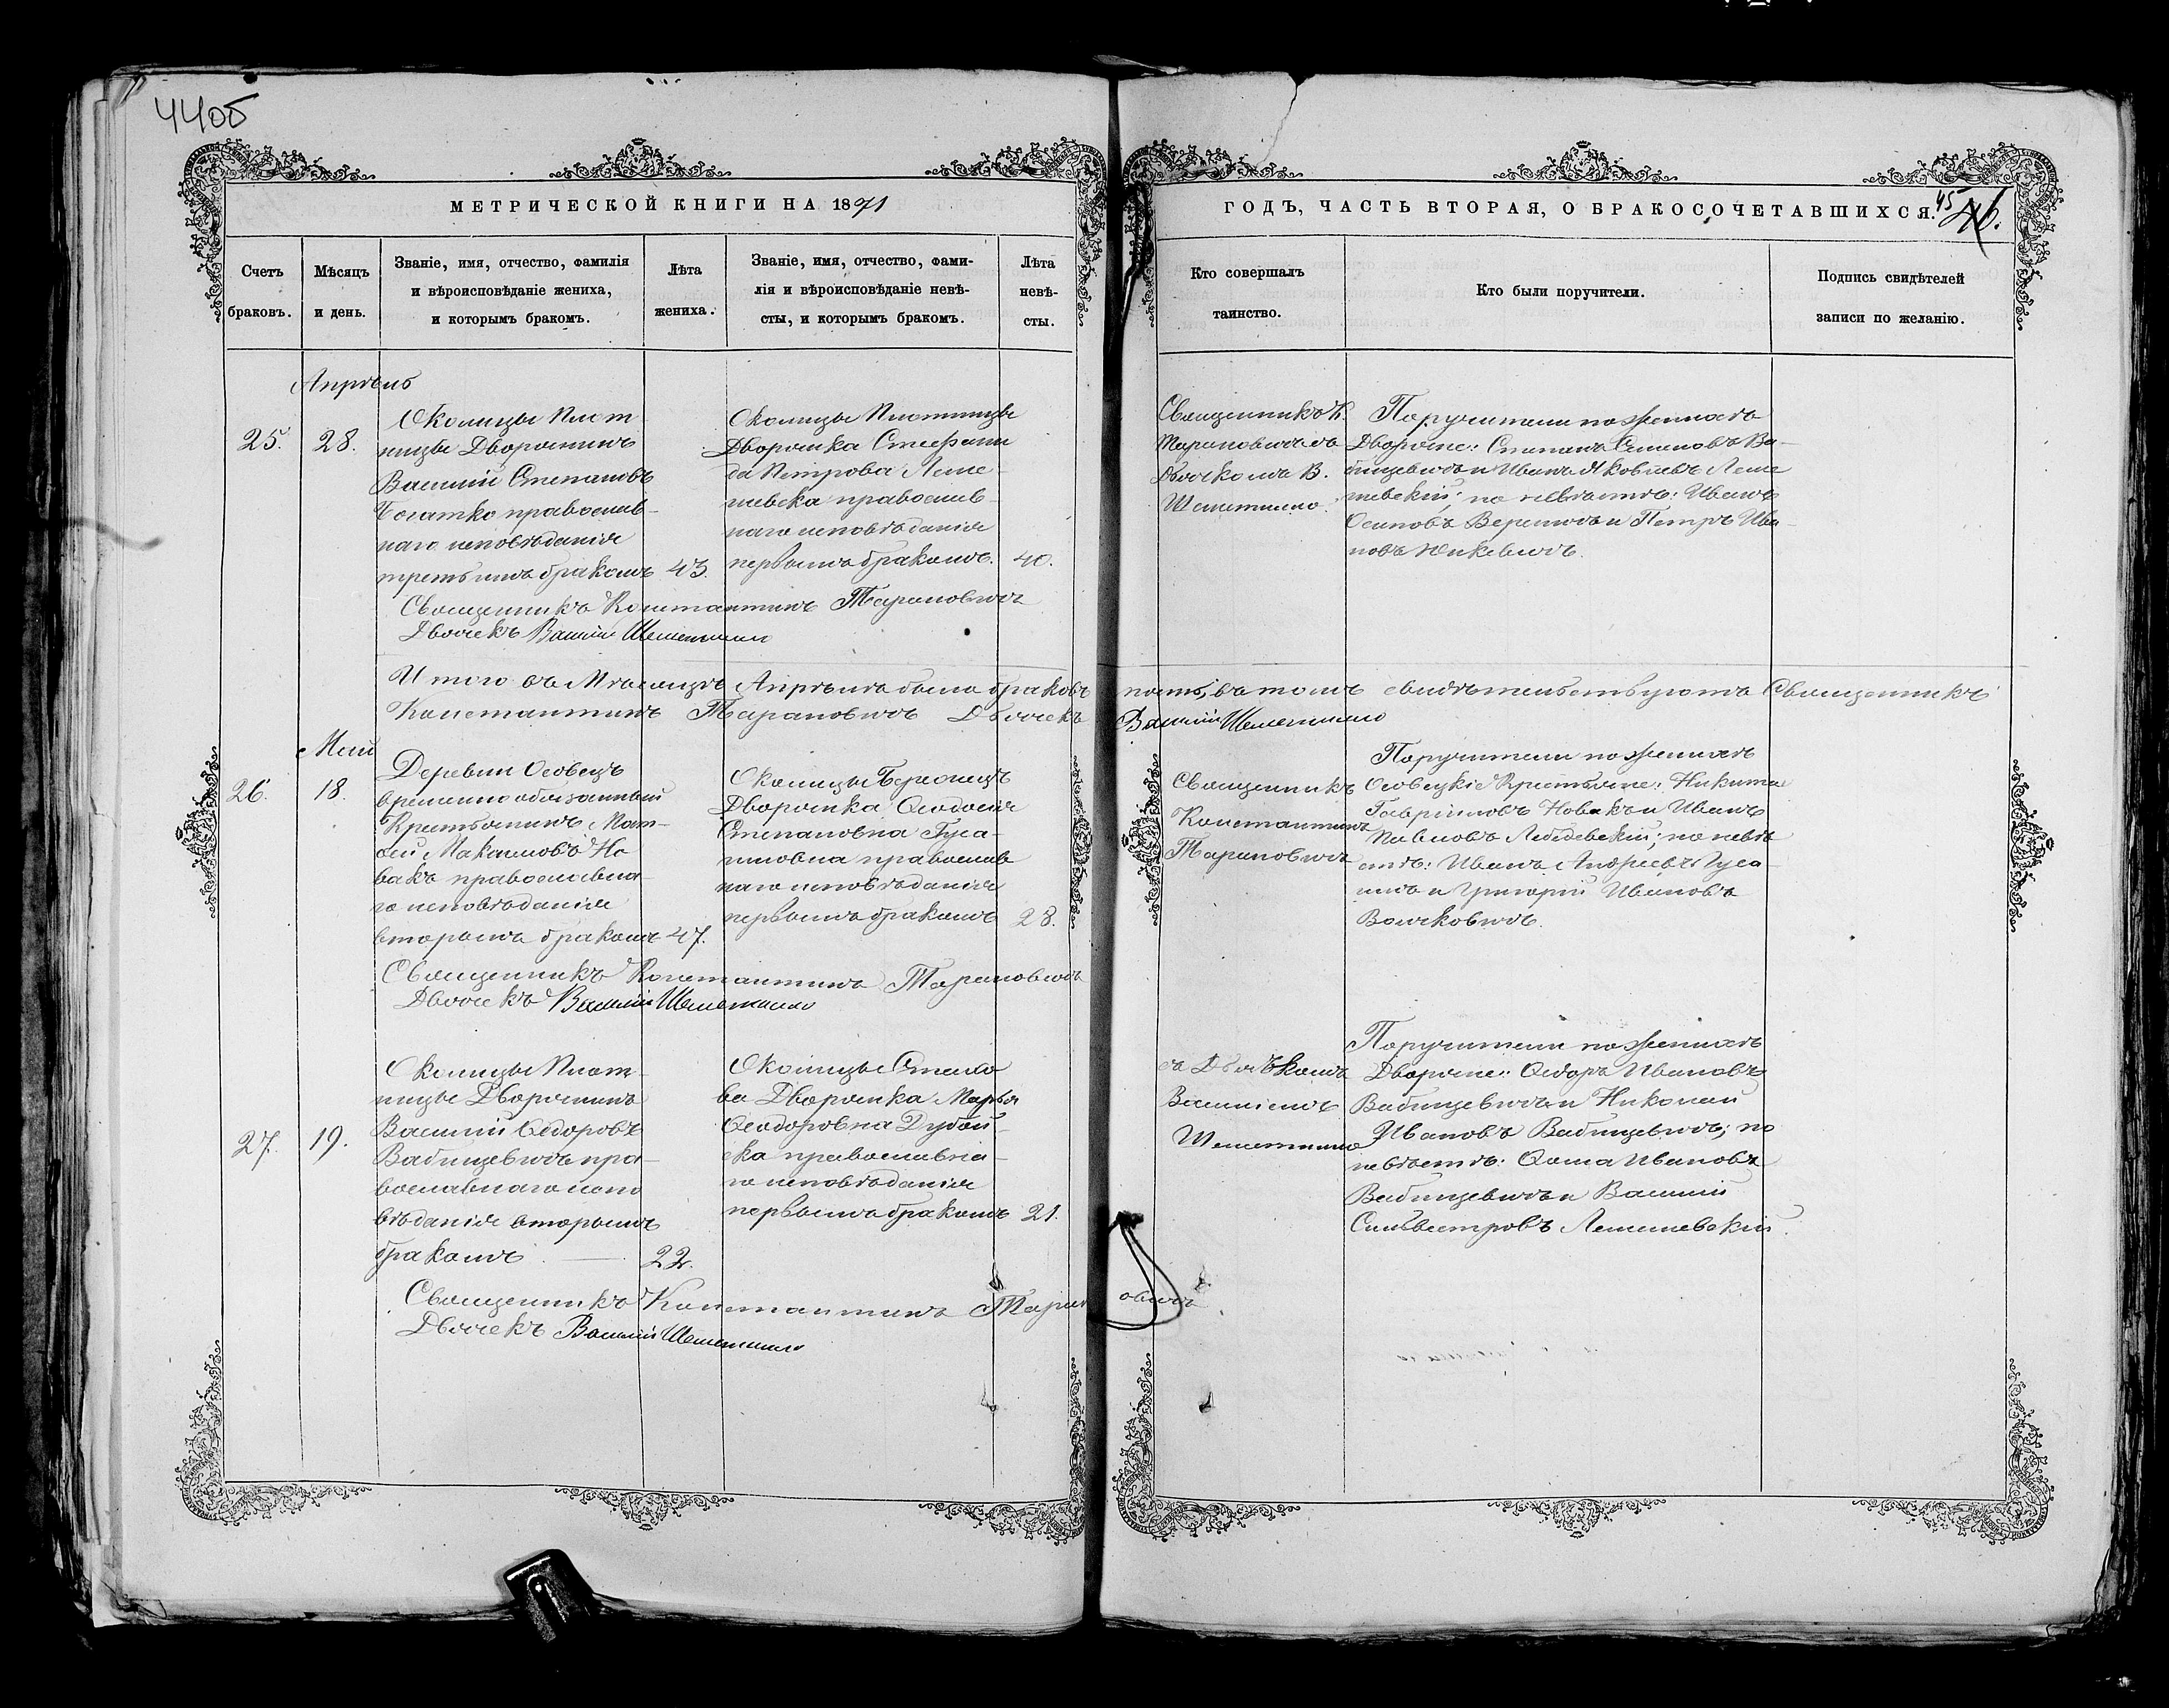 44об
МЕТРИЧЕСКОЙ КНИГИ НА 1871
ГОДЪ, ЧАСТЬ ВТОРАЯ, О БРАКОСОЧЕТАВШИХСЯ.
45
46.
Счетъ
браковъ.
Мѣсяцъ
и день.
Званіе, имя, отчество, фамилія
и вѣроисповѣданіе жениха,
и которымъ бракомъ.
Лѣта
жениха.
Званіе, имя, отчество, фами-
лія и вѣроисповѣданіе невѣ-
сты, и которымъ бракомъ.
Лѣта
невѣ-
сты.
Кто совершалъ
таинство.
Кто были поручители.
Подпись свидѣтелей
записи по желанію.
Апрѣль
25.
28.
Околицы Плот
ницы Дворянинъ
Василій Степановъ
Богатко православ-
наго исповѣданія
третьимъ бракомъ
43.
Околицы Плотницы
Дворянка Стефани
да Петрова Леме-
шевска православ-
наго исповѣданія
первымъ бракомъ.
40.
Священникъ К.
Тарановичъ съ
Дьячкомъ В.
Шеметилло
Поручители по женихѣ
Дворяне: Степанъ Семеновъ Ва-
бищевичъ и Иванъ Яковлевъ Леме
шевскій; по невѣстѣ: Иванъ
Осиповъ Вереничъ и Петръ Ива-
новъ
Священникъ Константинъ Тарановичъ
Дьячекъ Василій Шеметилло
Итого въ Мѣсяцѣ Апрѣлѣ было браковъ пять, въ томъ свидѣтельствуютъ Священникъ
Константинъ Тарановичъ Дьячекъ Василій Шеметилло
Май
26.
18.
Деревни Осовецъ
временно обязанный
Крестьянинъ Мат-
ѳей Максимовъ Но
вакъ православна-
го исповѣданія
вторымъ бракомъ
47.
Околицы
Дворянка Ѳеодосія
Степановна Гуса-
православ
наго исповѣданія
первымъ бракомъ
28.
Священникъ
Константинъ
Тарановичъ
Поручители по женихѣ
Осовецкіе Крестьяне: Никита
Гавріиловъ Новакъ и Иванъ
Павловъ Лебедевскій; по невѣ
стѣ: Иванъ Андреевъ Гуса-
и Григорій Ивановъ
Волчковичъ.
Священникъ Константинъ Тарановичъ
Дьячекъ Василій Шеметилло
27.
19.
Околицы Плот-
ницы Дворянинъ
Василій Ѳедоровъ
Вабищевичъ пра-
вославнаго испо
вѣданія вторымъ
бракомъ
22.
Околицы Стахо
ва Дворянка Марья
Ѳеодоровна Дубой-
ска православна-
го исповѣданія
первымъ бракомъ
21.
съ Дьячкомъ
Василіемъ
Шеметилло
Поручители по женихѣ
Дворяне: Ѳедоръ Ивановъ
Вабищевичъ и Николай
Ивановъ Вабищевичъ; по
невѣстѣ: Ѳома Ивановъ
Вабищевичъ и Василій
Сильвестровъ Лемешевскій.
Священникъ Константинъ Тарановичъ
Дьячекъ Василій Шеметилло